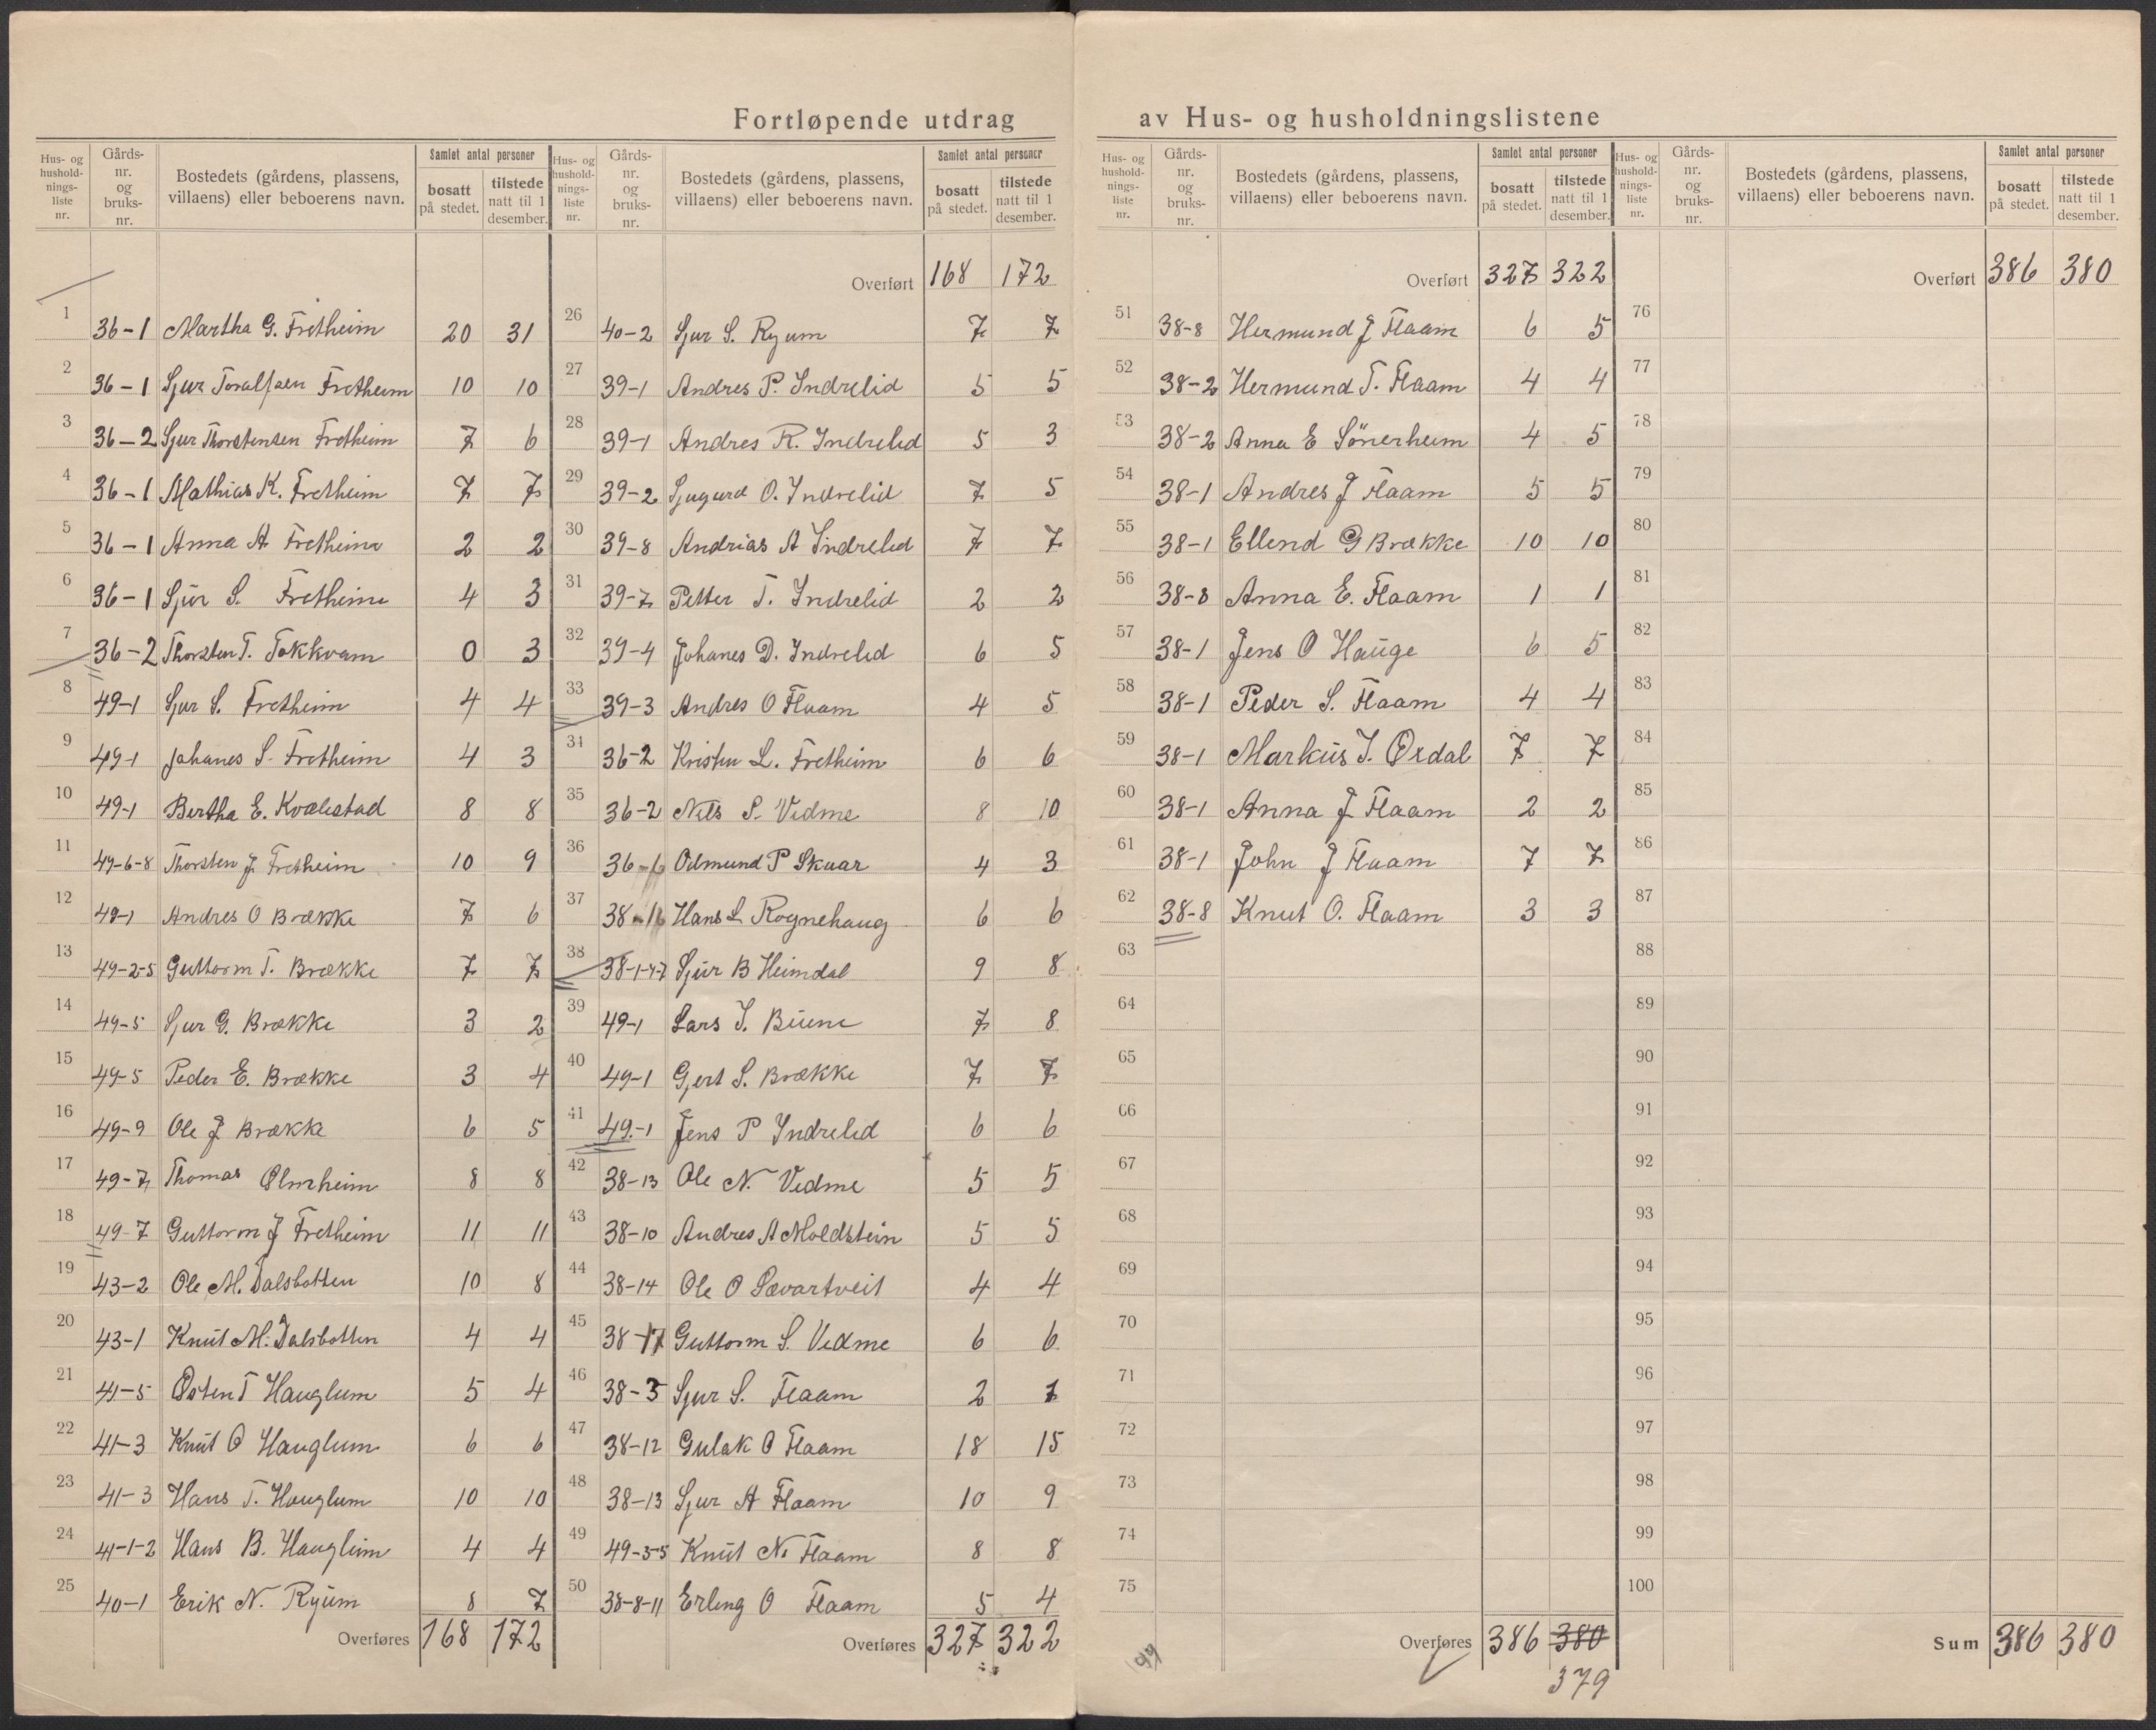 Fortløpende utdrag av Hus- og husholdningslistene
Hus- og husholdnings-liste nr. | Gårds-nr. og bruks-nr. | Bostedets (gårdens, plassens, villaens) eller beboerens navn. | Samlet antal personer | bosatt på stedet. | tilstede natt til 1 desember.
1 36-1 Martha G. Fretheim 20 31
2 36-1 Sjur Toralfsen Fretheim 10 10
3 36-2 Sjur Thorstensen Fretheim 7 6
4 36-1 Mathias K. Fretheim 7 7
5 36-1 Anna A Fretheim 2 2
6 36-1 Sjur S. Fretheim 4 3
7 36-2 Thorsten T. Tokkvam 0 3
8 49-1 Sjur S. Fretheim 4 4
9 49-1 Johanes S. Fretheim 4 3
10 49-1 Bertha E. Kvalestad 8 8
11 49-6-8 Thorsten J Fretheim 10 9
12 49-1 Andres O Brække 7 6
13 49-2-5 Guttorm T. Brække 7 7
14 49-5 Sjur G. Brække 3 2
15 49-5 Peder E. Brække 3 4
16 49-9 Ole J Brække 6 5
17 49-7 Thomas 8 8
18 49-7 Guttorm J Fretheim 11 11
19 43-2 Ole M. Dalsbotten 10 8
20 43-1 Knut M. Dalsbotten 4 4
21 41-5 Østen T Hauglum 5 4
22 41-3 Knut O Hauglum 6 6
23 41-3 Hans T. Hauglum 10 10
24 41-1-2 Hans B. Hauglum 4 4
25 40-1 Erik N. Ryum 8 7
Overføres 168 172
Hus- og husholdnings-liste nr. | Gårds-nr. og bruks-nr. | Bostedets (gårdens, plassens, villaens) eller beboerens navn. | Samlet antal personer | bosatt på stedet. | tilstede natt til 1 desember.
Overført 168 172
26 40-2 Sjur S. Ryum 7 7
27 39-1 Andres P. Indrelid 5 5
28 39-1 Andres R. Indrelid 5 3
29 39-2 Sjugurd O. Indrelid 7 5
30 39-8 Andrias A Indrelid 7 7
31 39-7 Petter T. Indrelid 2 2
32 39-4 Johanes D. Indrelid 6 5
33 39-3 Andres O Flaam 4 5
34 36-2 Kristen L. Fretheim 6 6
35 36-2 Nils S. Vidme 8 10
36 36-6 Odmund P Skaar 4 3
37 38-16 Hans L Rognehaug 6 6
38 38-1-4-7 Sjur B Heimdal 9 8
39 49-1 Lars J. Buene 7 8
40 49-1 Gjert S. Brække 7 7
41 49-1 Jens P Indrelid 6 6
42 38-13 Ole N. Vidme 5 5
43 38-10 Andres A Moldstein 5 5
44 38-14 Ole O Sævartveit 4 4
45 38-17 Guttorm S. Vidme 6 6
46 38-3 Sjur S. Flaam 2 1
47 38-12 Gulak O Flaam 18 15
48 38-13 Sjur A Flaam 10 9
49 49-3-5 Knut N. Flaam 8 8
50 38-8-11 Erling O Flaam 5 4
Overføres 327 322
Hus- og husholdnings-liste nr. | Gårds-nr. og bruks-nr. | Bostedets (gårdens, plassens, villaens) eller beboerens navn. | Samlet antal personer | bosatt på stedet. | tilstede natt til 1 desember.
Overført 327 322
51 38-8 Hermund J Flaam 6 5
52 38-2 Hermund T. Flaam 4 4
53 38-2 Anna E Sönerheim 4 5
54 38-1 Andres J Flaam 5 5
55 38-1 Ellend G Brække 10 10
56 38-8 Anna E. Flaam 1 1
57 38-1 Jens O Hauge 6 5
58 38-1 Peder S. Flaam 4 4
59 38-1 Markus J. Øxdal 7 7
60 38-1 Anna J Flaam 2 2
61 38-1 John J Flaam 7 7
62 38-8 Knut O. Flaam 3 3
63
64
65
66
67
68
69
70
71
72
73
74
75
99
Overføres 386 380
379
Hus- og husholdnings-liste nr. | Gårds-nr. og bruks-nr. | Bostedets (gårdens, plassens, villaens) eller beboerens navn. | Samlet antal personer | bosatt på stedet. | tilstede natt til 1 desember.
Overført 386 380
76
77
78
79
80
81
82
83
84
85
86
87
88
89
90
91
92
93
94
95
96
97
98
99
100
Sum 386 380